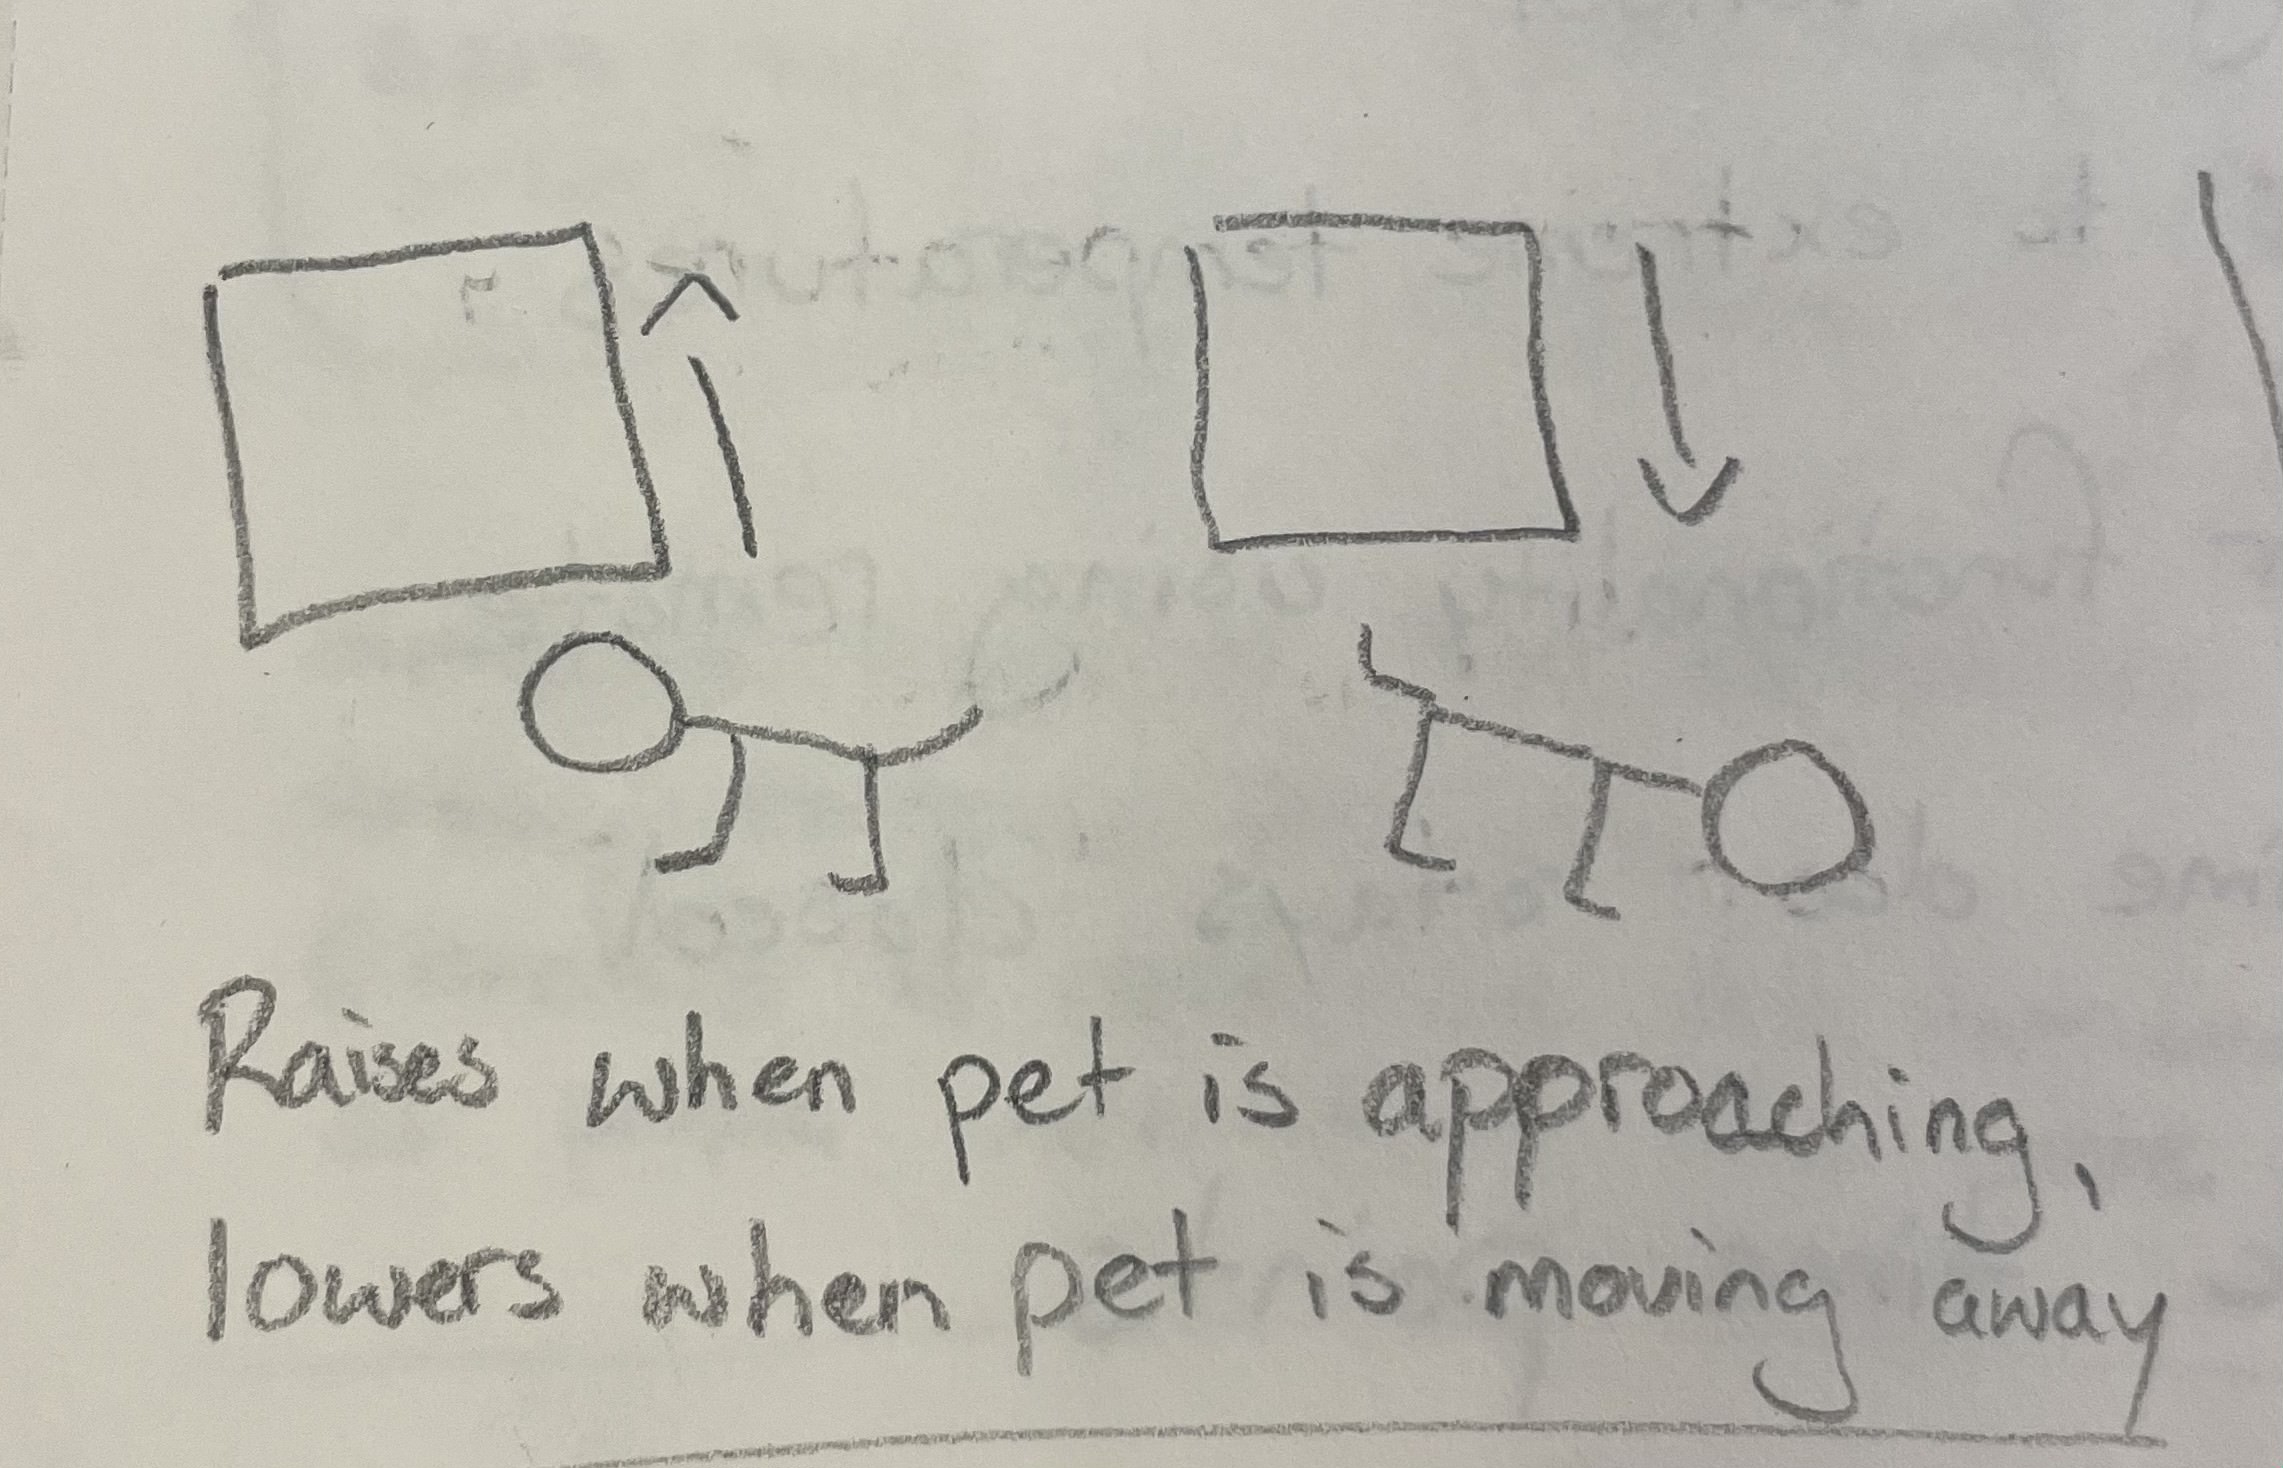 Raises when pet is approaching,
lowers when pet is moving away